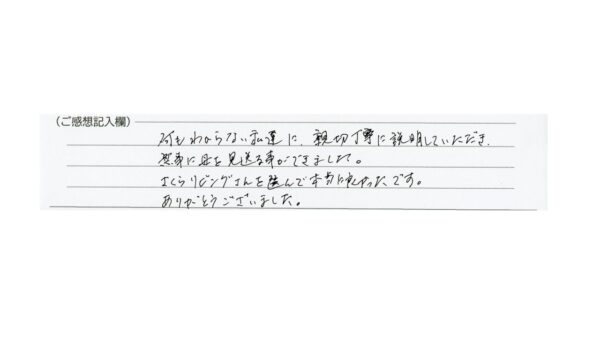 (ご感想記入欄)
何もわからない私達に、親切丁寧に説明していただき、
無事に母を見送る事ができました。
さくらリビングさんを選んで本当に良かったです。
ありがとうございました。